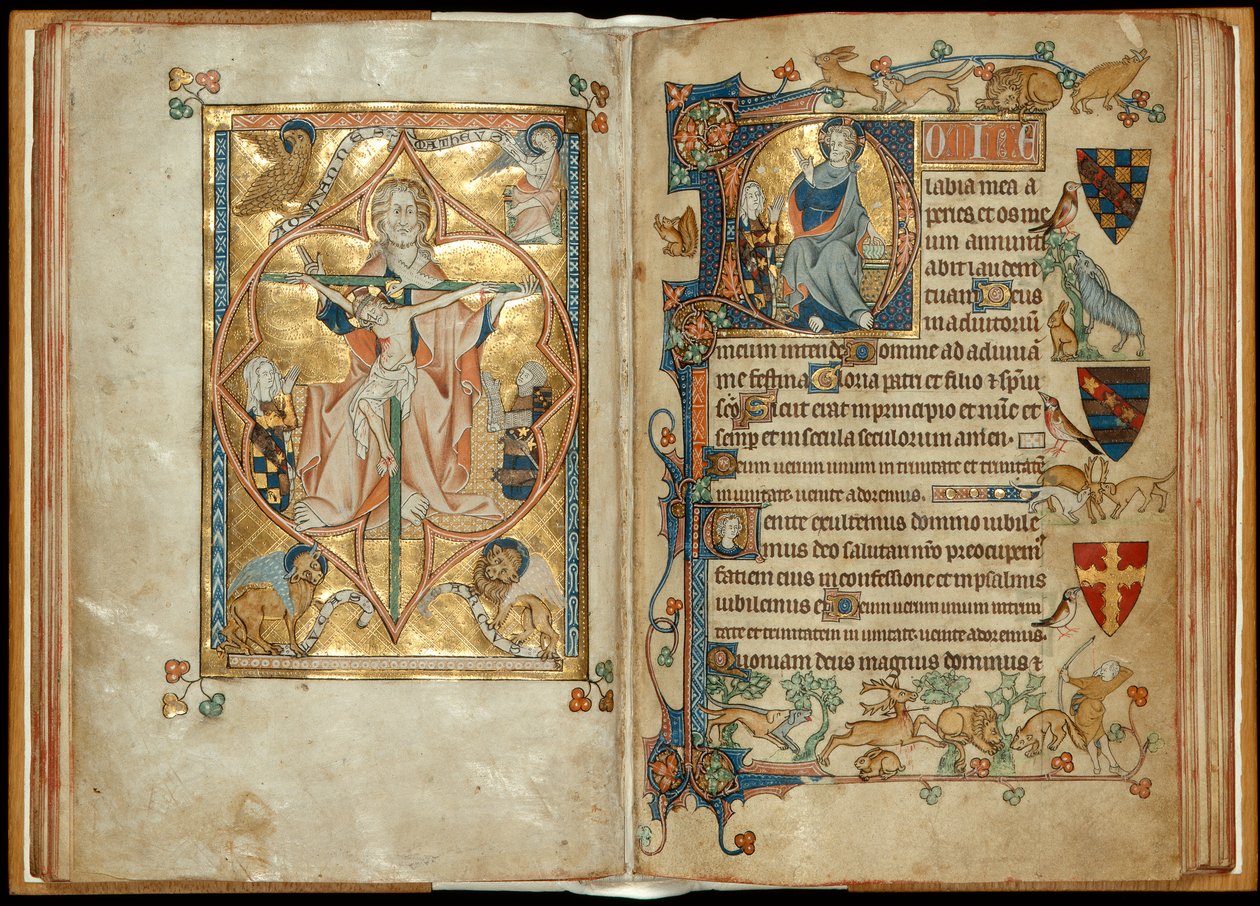 IOHANNES
MATHEUS
LUCAS
MARCUS
OMINE
labia mea a
peries et os me
um annunti
abit laudem
tuam Deus
in adiutoriū
meum intende Domine ad adiuuā
me festina Gloria patri et filio ⁊ sp̄ui
sc̄o Sicut erat in principio et nūc et
semp̄ et in secula seculorum amen.
Deum uerum unum in trinitate et trinitatē
in unitate. uenite adoremus.
Uenite exultemus domino iubile
mus deo salutari nr̄o preocupem̄
faciem eius in confessione et in psalmis
iubilemus ei Deum uerum unum in trini
tate et trinitatem in unitate. uenite adoremus.
Quoniam deus magnus dominus ⁊